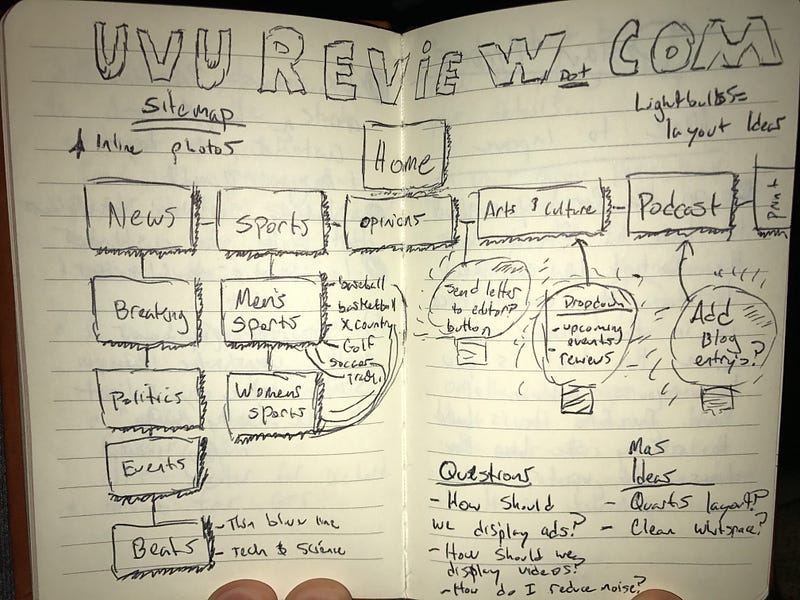 UVU REVIEW DOT COM
Sitemap
Inline photos
Lightbulbs =
layout Ideas
Home
News
Sports
Opinions
Arts & Culture
Podcast
Print
Breaking
Men's
sports
- baseball
- basketball
- X country
- Golf
soccer
Track
Send letter
to editor?
button
Dropdown
- upcoming
events
- reviews
Add
Blog
entry's?
Politics
Womens
sports
Events
Beats
- Thin brown line
- Tech & Science
Questions
- How Should
we display ads?
- How Should we
display videos?
- How do I reduce noise?
Mas
Ideas
- Quarts layout?
- Clean whitespace?